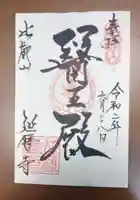 奉拝
令和二年
六月二十八日
醫王殿
比叡山
延暦寺